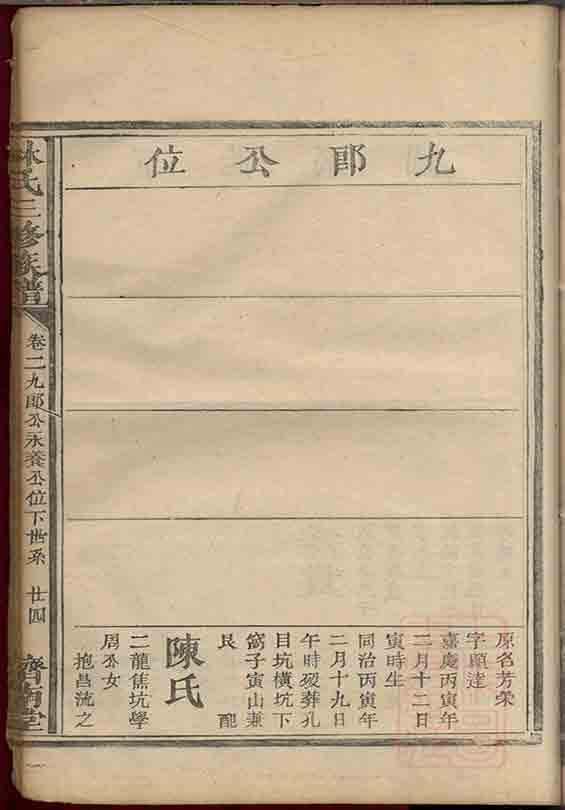 九郎公位
原名芳荣
字顯達
嘉慶丙寅年
二月十二日
寅時生
同治丙寅年
二月十九日
午時歿葬孔
目坑橫坑下
窩子寅山兼
艮　配
陳氏
二龍焦坑學
周公女
抱昌流之
林氏三修族譜
卷二九郎公永養公位下世系　廿四
濟南堂